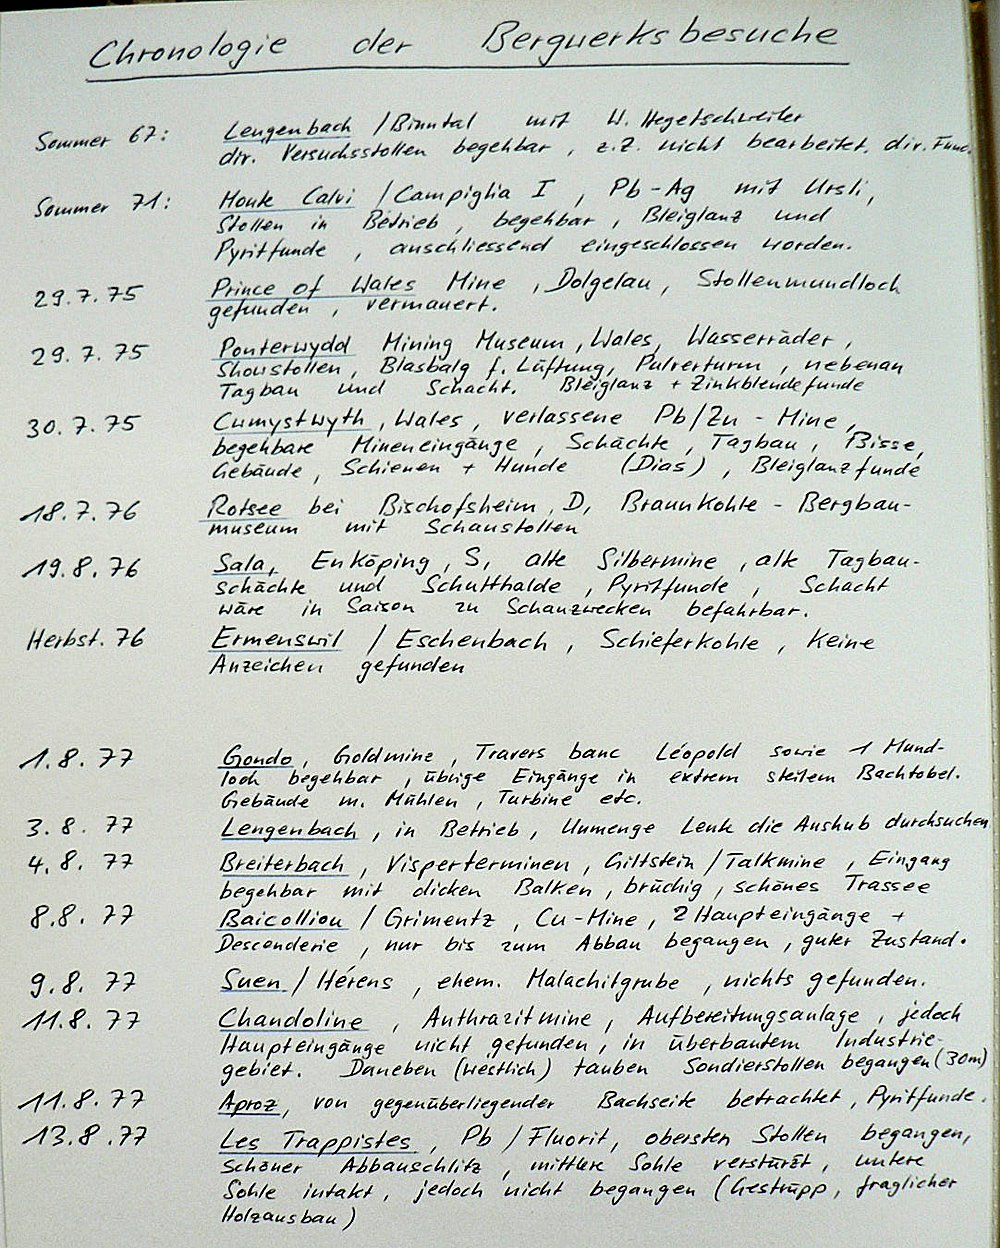 Chronologie der Bergwerksbesuche
Sommer 67: Lengenbach / Binntal mit W. Hegetschweiler
div. Versuchsstollen begehbar, z.Z. nicht bearbeitet, div. Fund.
Sommer 71: Monte Calvi / Campiglia I, Pb-Ag mit Ursli,
Stollen in Betrieb, begehbar, Bleiglanz und
Pyritfunde, anschliessend eingeschlossen worden.
29.7.75 Prince of Wales Mine, Dolgelau, Stollenmundloch
gefunden, vermauert.
29.7.75 Ponterwydd Mining Museum, Wales, Wasserräder,
Showstollen, Blasbalg f. Lüftung, Pulverturm, nebenan
Tagbau und Schacht. Bleiglanz + Zinkblendefunde
30.7.75 Cwmystwyth, Wales, verlassene Pb/Zn-Mine,
begehbare Mineneingänge, Schächte, Tagbau, Bisse,
Gebäude, Schienen + Hunde (Dias), Bleiglanzfunde
18.7.76 Rotsee bei Bischofsheim, D, Braunkohle-Bergbau-
museum mit Schaustollen
19.8.76 Sala, Enköping, S, alte Silbermine, alte Tagbau-
schächte und Schutthalde, Pyritfunde, Schacht
wäre in Saison zu Schauzwecken befahrbar.
Herbst. 76 Ermenswil / Eschenbach, Schieferkohle, Keine
Anzeichen gefunden
1.8.77 Gondo, Goldmine, Travers banc Léopold sowie 1 Mund-
loch begehbar, übrige Eingänge in extrem steilem Bachtobel.
Gebäude m. Mühlen, Turbine etc.
3.8.77 Lengenbach, in Betrieb, Unmenge Leute die Aushub durchsuchen
4.8.77 Breiterbach, Visperterminen, Giltstein / Talkmine, Eingang
begehbar mit dicken Balken, brüchig, schönes Trassee
8.8.77 Baicolliou / Grimentz, Cu-Mine, 2 Haupteingänge +
Descenderie, nur bis zum Abbau begangen, guter Zustand.
9.8.77 Suen / Hérens, ehem. Malachitgrube, nichts gefunden.
11.8.77 Chandoline, Anthrazitmine, Aufbereitungsanlage, jedoch
Haupteingänge nicht gefunden, in überbautem Industrie-
gebiet. Daneben (westlich) tauben Sondierstollen begangen (30m)
11.8.77 Aproz, von gegenüberliegender Bachseite betrachtet, Pyritfunde.
13.8.77 Les Trappistes, Pb / Fluorit, obersten Stollen begangen,
schöner Abbauschlitz, mittlere Sohle verstürzt, untere
Sohle intakt, jedoch nicht begangen (Gestrüpp, fraglicher
Holzausbau)